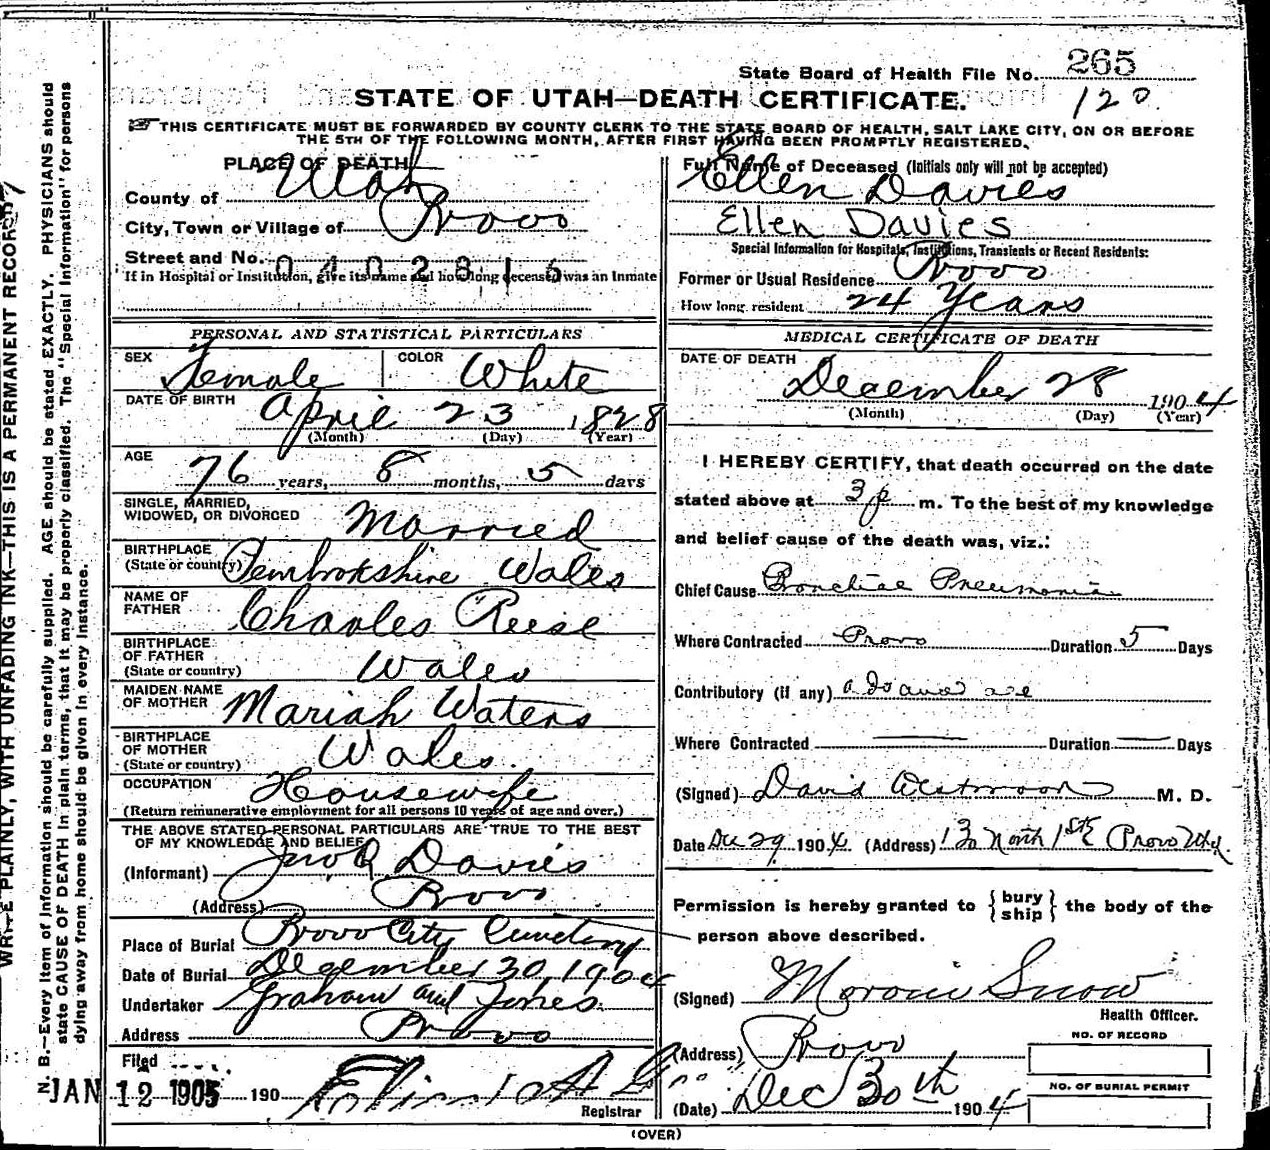 State Board of Health File No. 265
120
STATE OF UTAH—DEATH CERTIFICATE.
THIS CERTIFICATE MUST BE FORWARDED BY COUNTY CLERK TO THE STATE BOARD OF HEALTH, SALT LAKE CITY, ON OR BEFORE
THE 5TH OF THE FOLLOWING MONTH, AFTER FIRST HAVING BEEN PROMPTLY REGISTERED.
WRITE PLAINLY, WITH UNFADING INK—THIS IS A PERMANENT RECORD
N. B.—Every item of information should be carefully supplied. AGE should be stated EXACTLY. PHYSICIANS should
state CAUSE OF DEATH in plain terms, that it may be properly classified. The "Special Information" for persons
dying away from home should be given in every instance.
PLACE OF DEATH
County of Utah
City, Town or Village of Provo
Street and No. 0402816
If in Hospital or Institution, give its name and how long deceased was an Inmate
PERSONAL AND STATISTICAL PARTICULARS
SEX Female COLOR White
DATE OF BIRTH April 23 1828
(Month) (Day) (Year)
AGE 76 years, 8 months, 5 days
SINGLE, MARRIED,
WIDOWED, OR DIVORCED Married
BIRTHPLACE
(State or country) Pembrokshire Wales
NAME OF
FATHER Charles Reese
BIRTHPLACE
OF FATHER
(State or country) Wales
MAIDEN NAME
OF MOTHER Mariah Waters
BIRTHPLACE
OF MOTHER
(State or country) Wales.
OCCUPATION Housewife
(Return remunerative employment for all persons 10 years of age and over.)
THE ABOVE STATED PERSONAL PARTICULARS ARE TRUE TO THE BEST
OF MY KNOWLEDGE AND BELIEF
(Informant) Jno R Davies
(Address) Provo
Place of Burial Provo City Cemetery
Date of Burial December 30, 1904
Undertaker Graham and Jones
Address Provo
Filed
JAN 12 1905 190
Registrar
Full Name of Deceased (Initials only will not be accepted)
Ellen Davies
Ellen Davies
Special Information for Hospitals, Institutions, Transients or Recent Residents:
Former or Usual Residence Provo
How long resident 24 Years
MEDICAL CERTIFICATE OF DEATH
DATE OF DEATH
December 28 1904
(Month) (Day) (Year)
I HEREBY CERTIFY, that death occurred on the date
stated above at 3 p m. To the best of my knowledge
and belief cause of the death was, viz.:
Chief Cause Bronchial Pneumonia
Where Contracted Provo Duration 5 Days
Contributory (if any)
Where Contracted — Duration — Days
(Signed) David Westwood M. D.
Date Dec 29 1904 (Address) 130 North 1st E Provo Utah
Permission is hereby granted to { bury ship } the body of the
person above described.
(Signed) Moroni Snow
Health Officer.
(Address) Provo
NO. OF RECORD
NO. OF BURIAL PERMIT
(Date) Dec 30th 1904
(OVER)